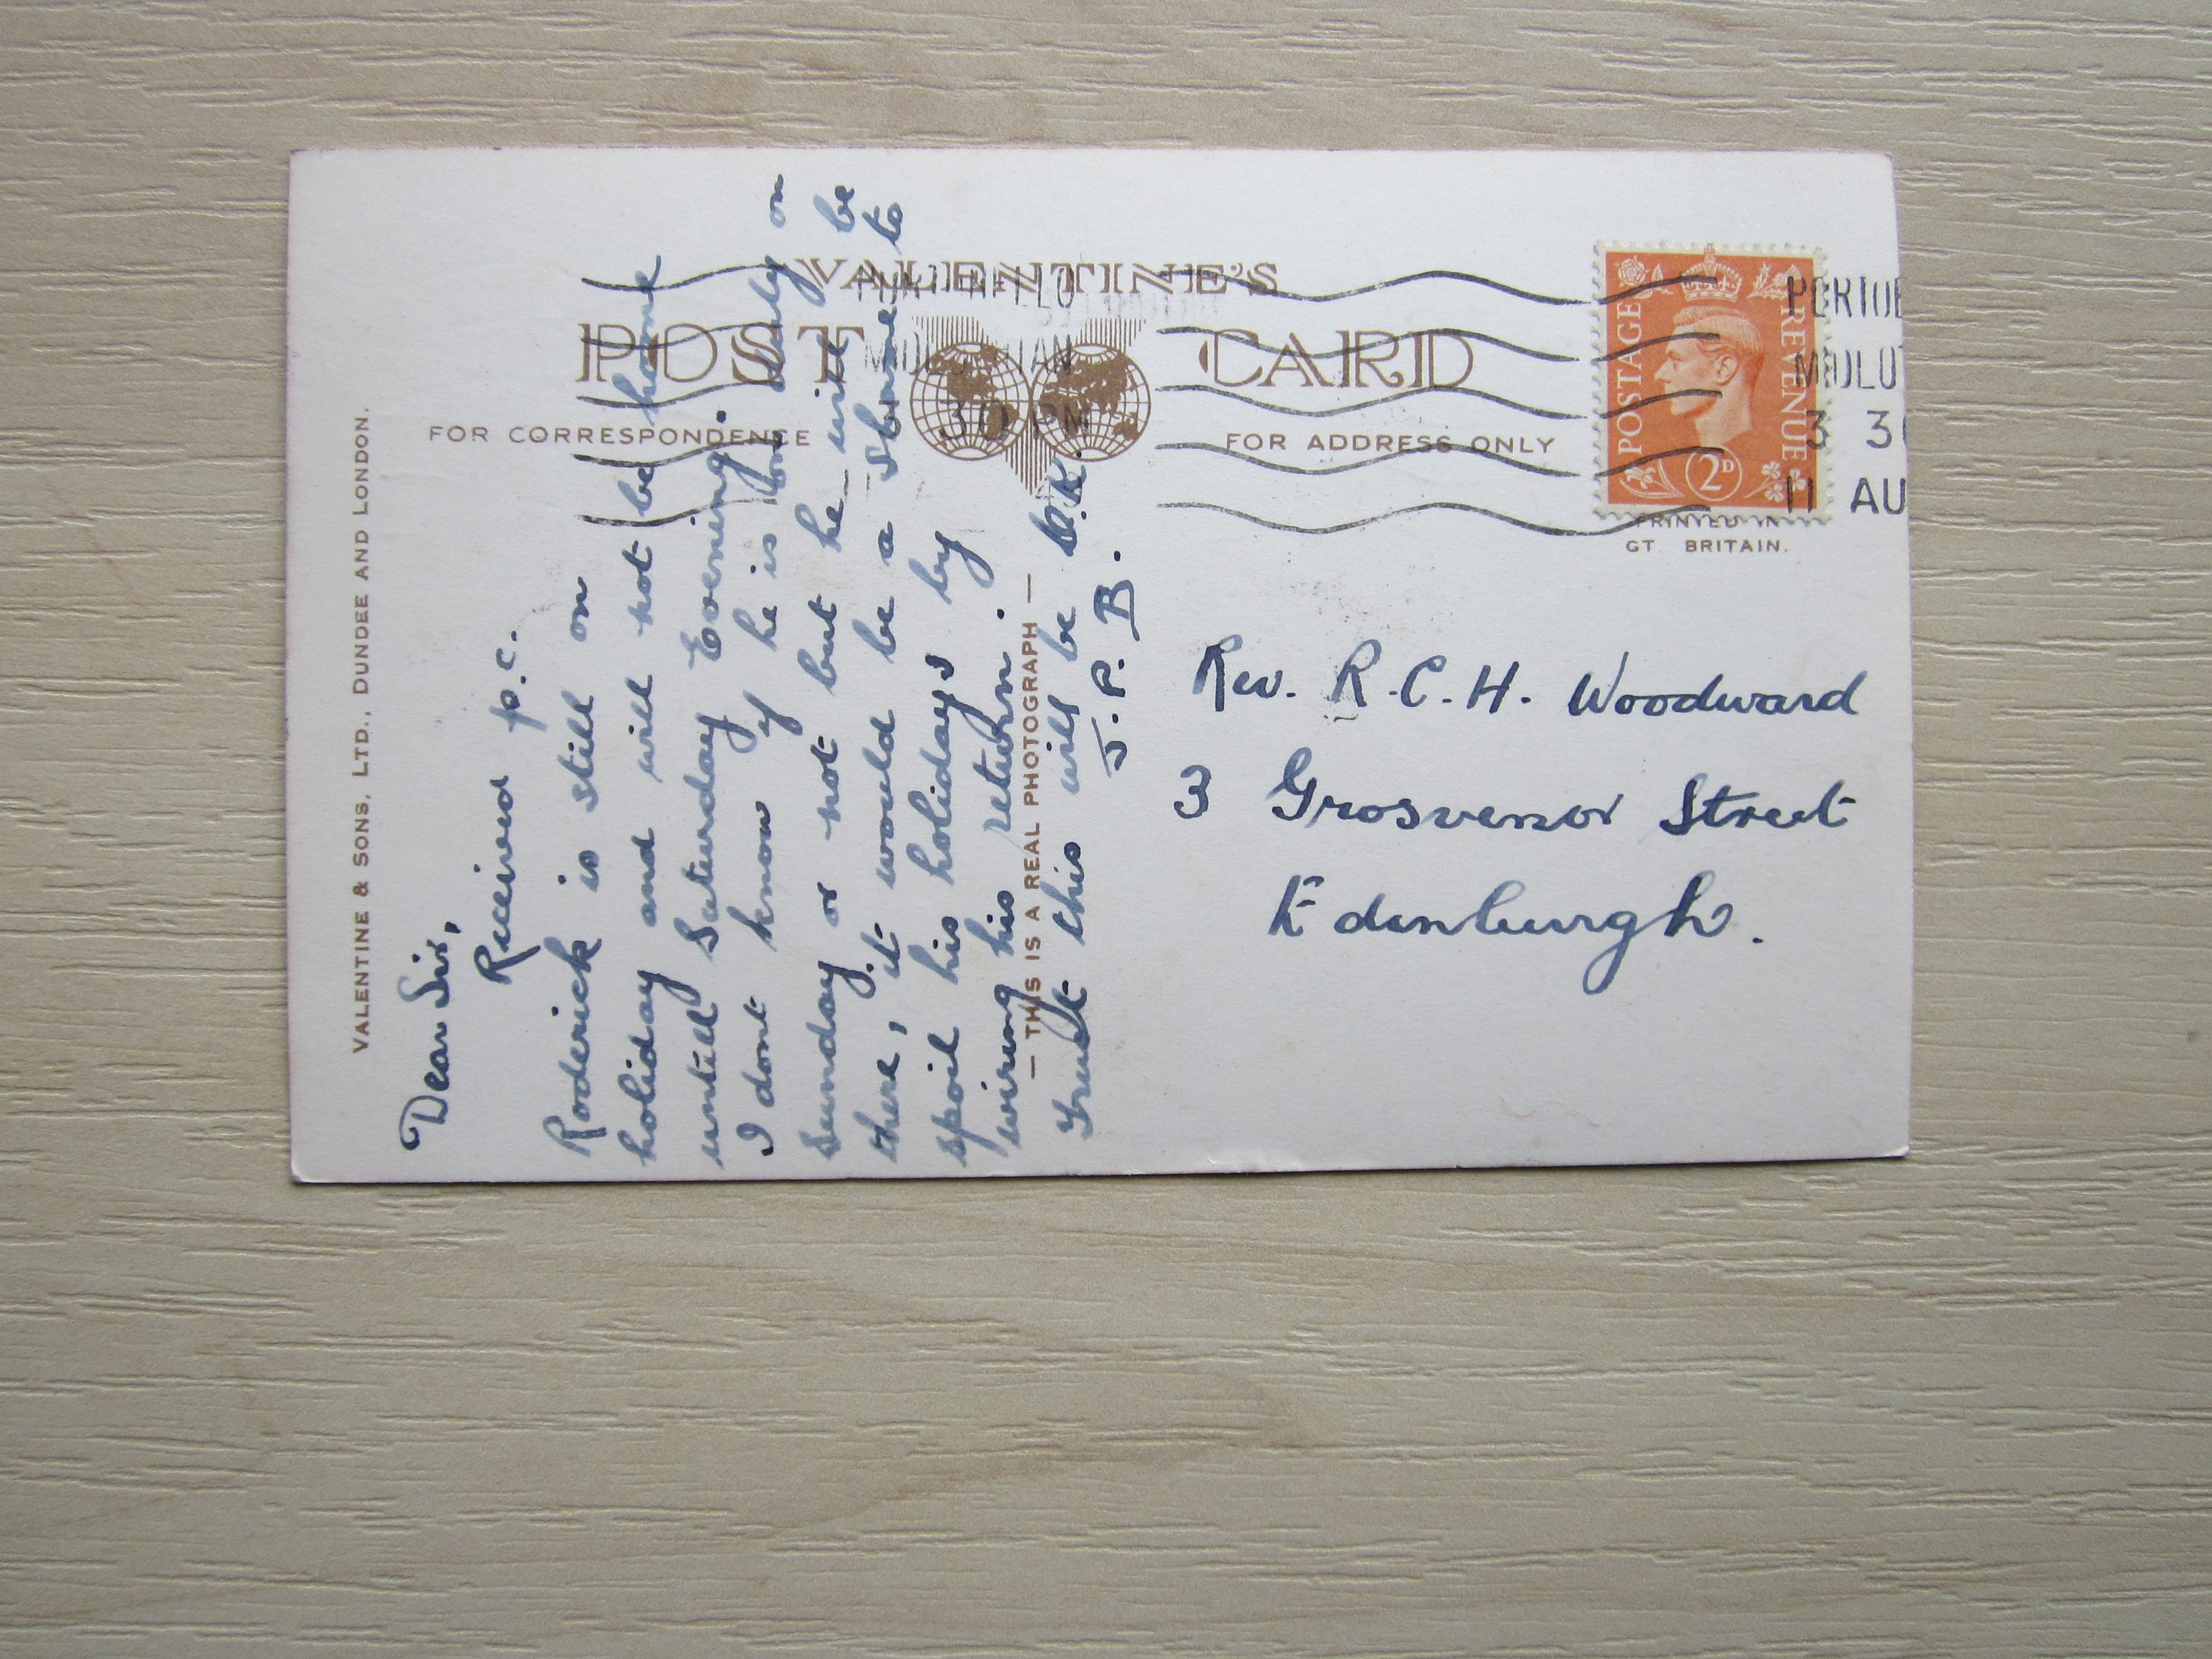 VALENTINE & SONS, LTD., DUNDEE AND LONDON.
VALENTINE'S
POST CARD
FOR CORRESPONDENCE
FOR ADDRESS ONLY
POSTAGE
REVENUE
2D
PRINTED IN
GT. BRITAIN.
3 30 PM
11 AU
Dear Sir,
Received p.c.
Roderick is still on
holiday and will not be home
until Saturday Evening.
I dont know if he is on duly on
Sunday or not but he will be
there, it would be a shame to
spoil his holidays by
wiring his return.
Trust this will be O.K.
J.P.B.
— THIS IS A REAL PHOTOGRAPH —
Rev. R.C.H. Woodward
3 Grosvenor Street
Edinburgh.